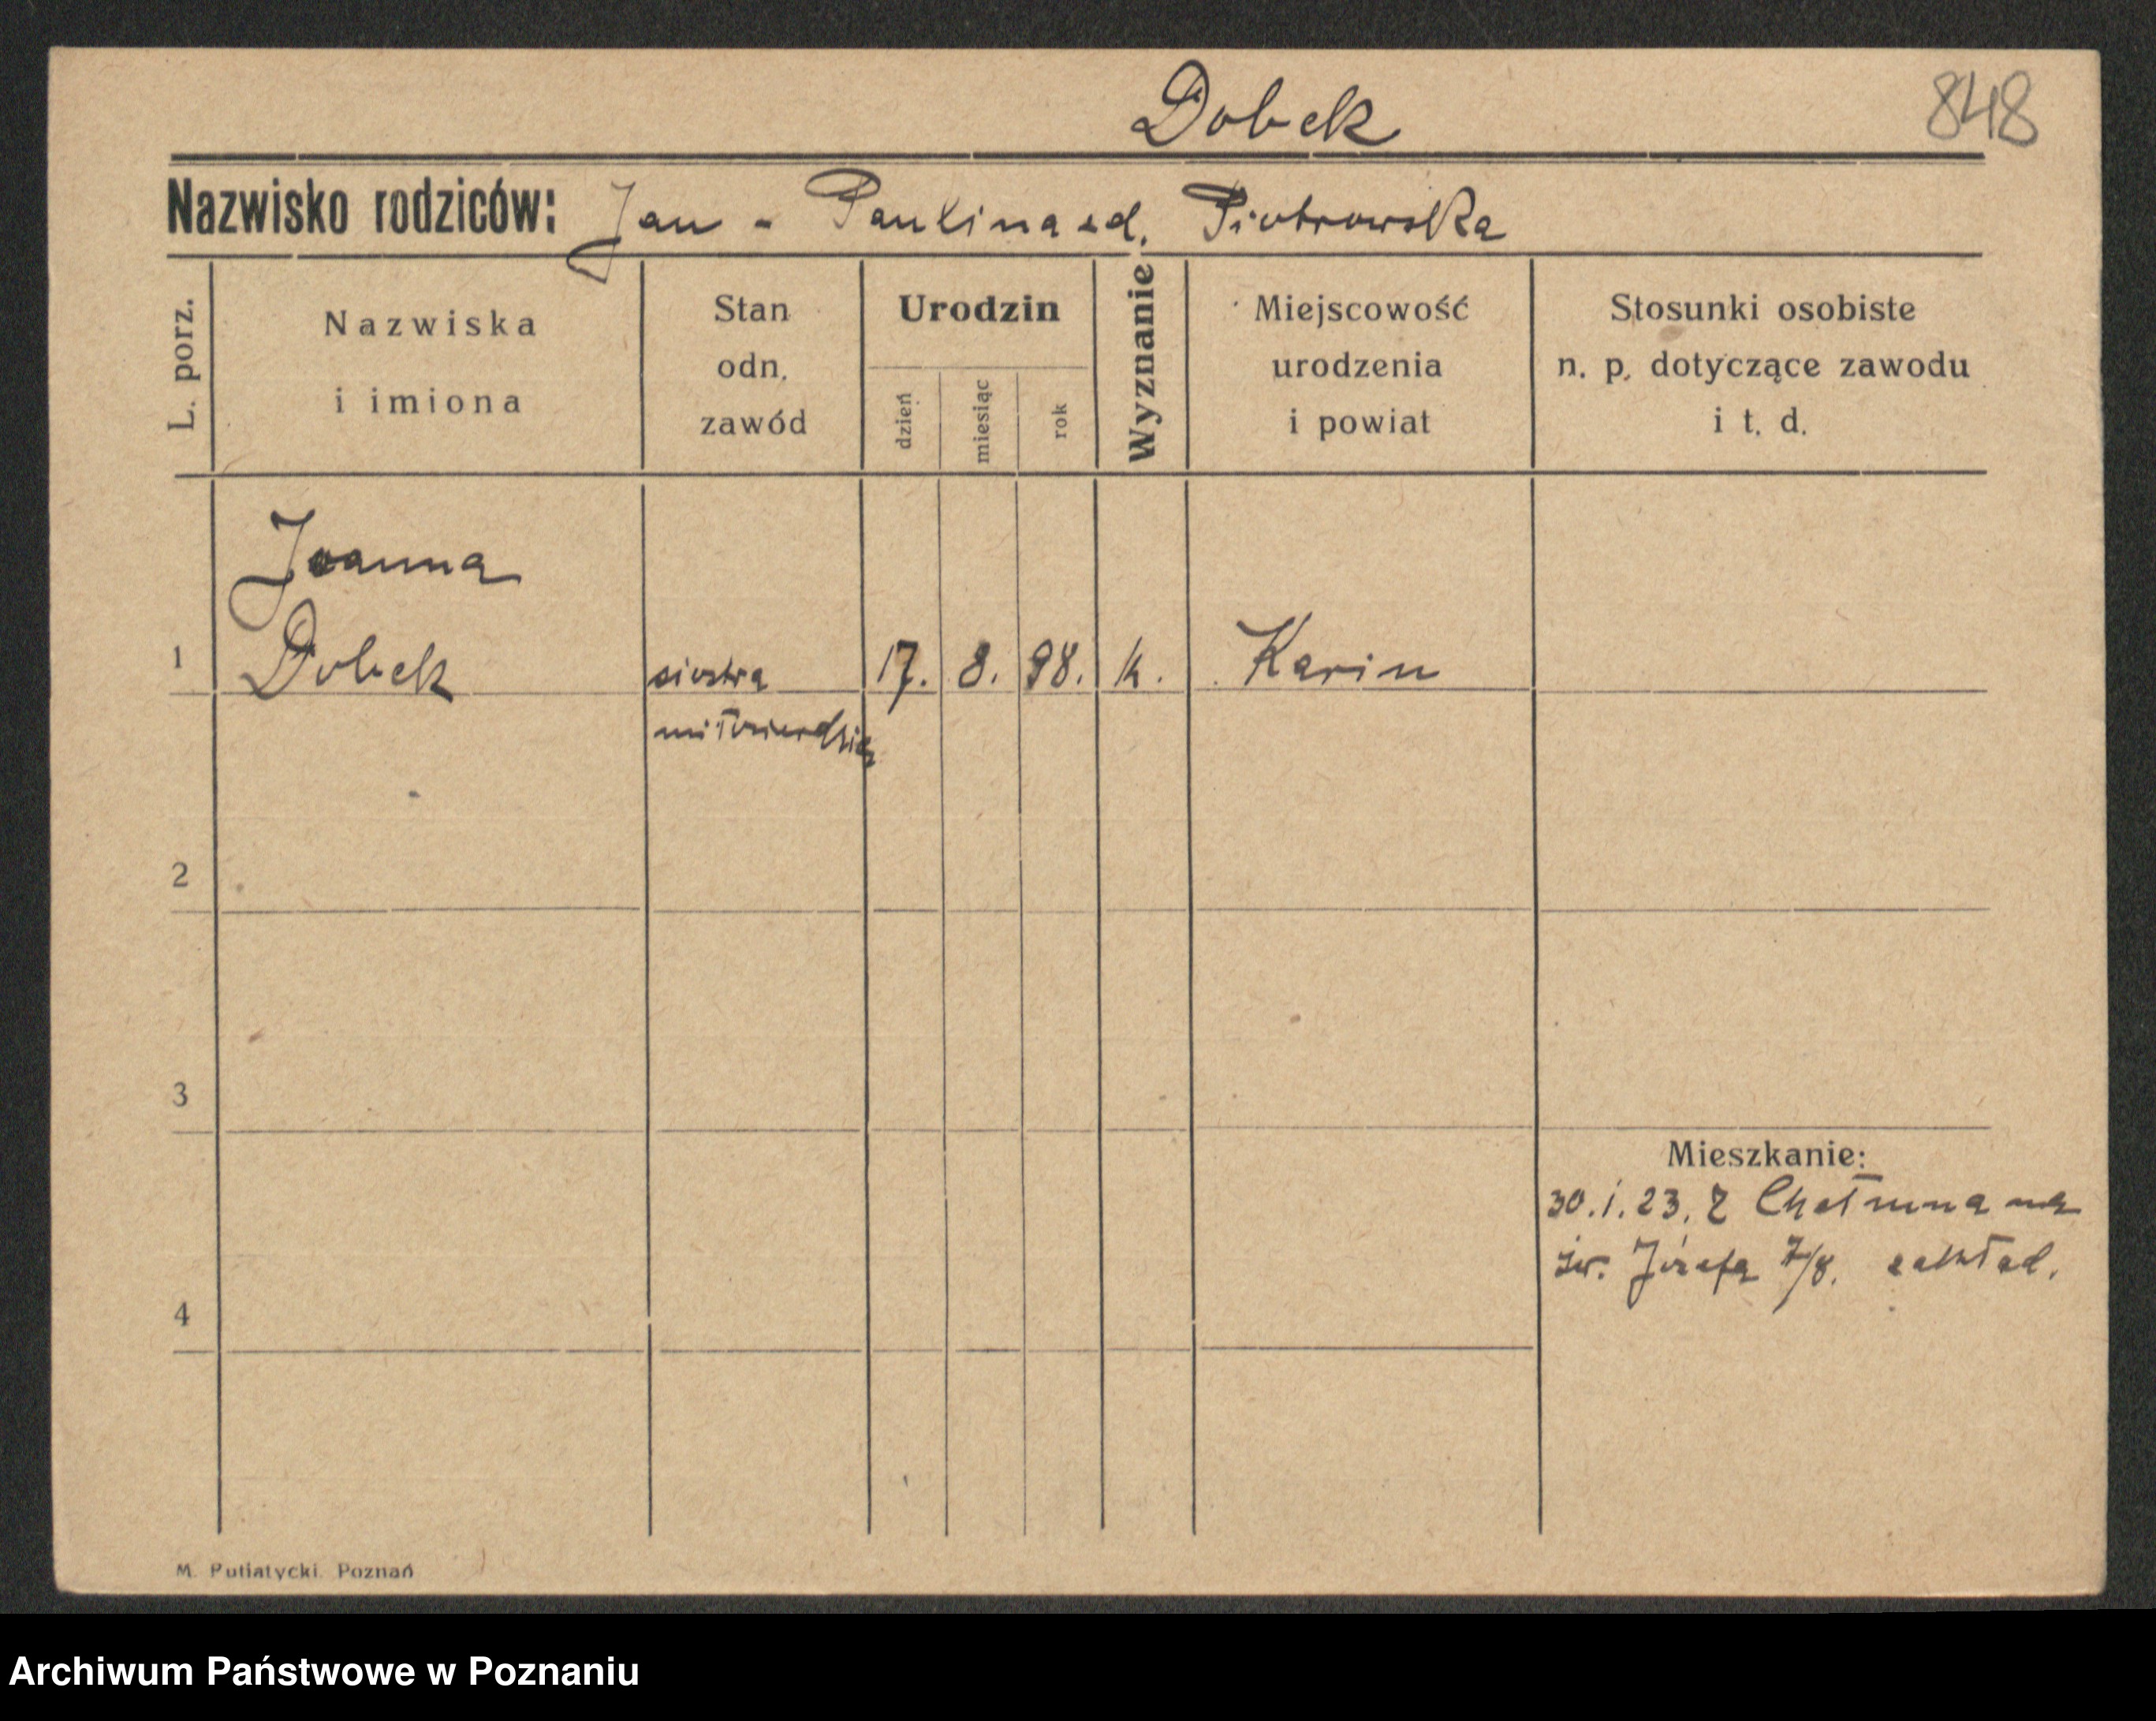 Dobek
848
Nazwisko rodziców: Jan - Paulina zd. Piotrowska
L. porz.
Nazwiska
i imiona
Stan
odn.
zawód
Urodzin
dzień
miesiąc
rok
Wyznanie
Miejscowość
urodzenia
i powiat
Stosunki osobiste
n. p. dotyczące zawodu
i t. d.
Joanna
1 Dobek siostra 17. 8. 98. k. Karin
miłosierdzia
2
3
Mieszkanie:
30.1.23. Z Chełmna na
św. Józefa 7/8. zakład.
4
M. Putiatycki. Poznań
Archiwum Państwowe w Poznaniu